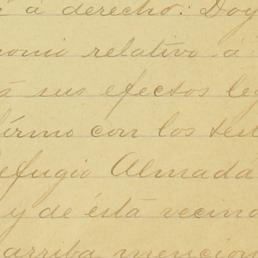 á derecho: Doy
relativo á
sus efectos leg
firmo con los tes
efugio Almada
y de ésta vecino
arriba mencion